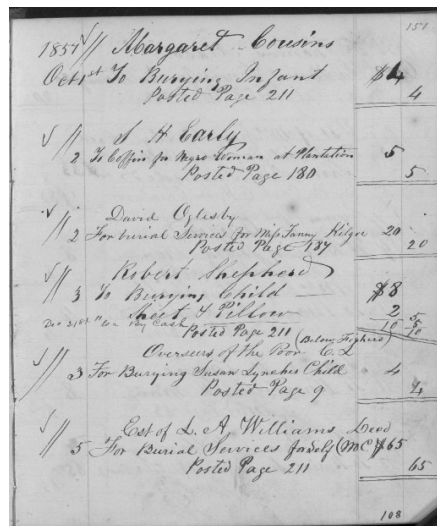 151
1857 // Margaret Cousins
Oct 1st To Burying Infant $4
Posted Page 211 4
√ // S H Early
2 To Coffin for Negro Woman at Plantation 5
Posted Page 180 5
√ // David Oglesby
2 For burial Services for Miss Fanny 20
Posted Page 187 20
√ // Robert Shepherd
3 To Burying Child $8
Sheet & Pillow 2
Dec 31st " By Cash 10 5
Posted Page 211 (Belong Highero)
√ // Overseers of the Poor C. L
3 For Burying Susan Lynches Child 4
Posted Page 9 4
√ // Est of L. A. Williams Deed
5 For Burial Services for self (MC) $65
Posted Page 211 65
108